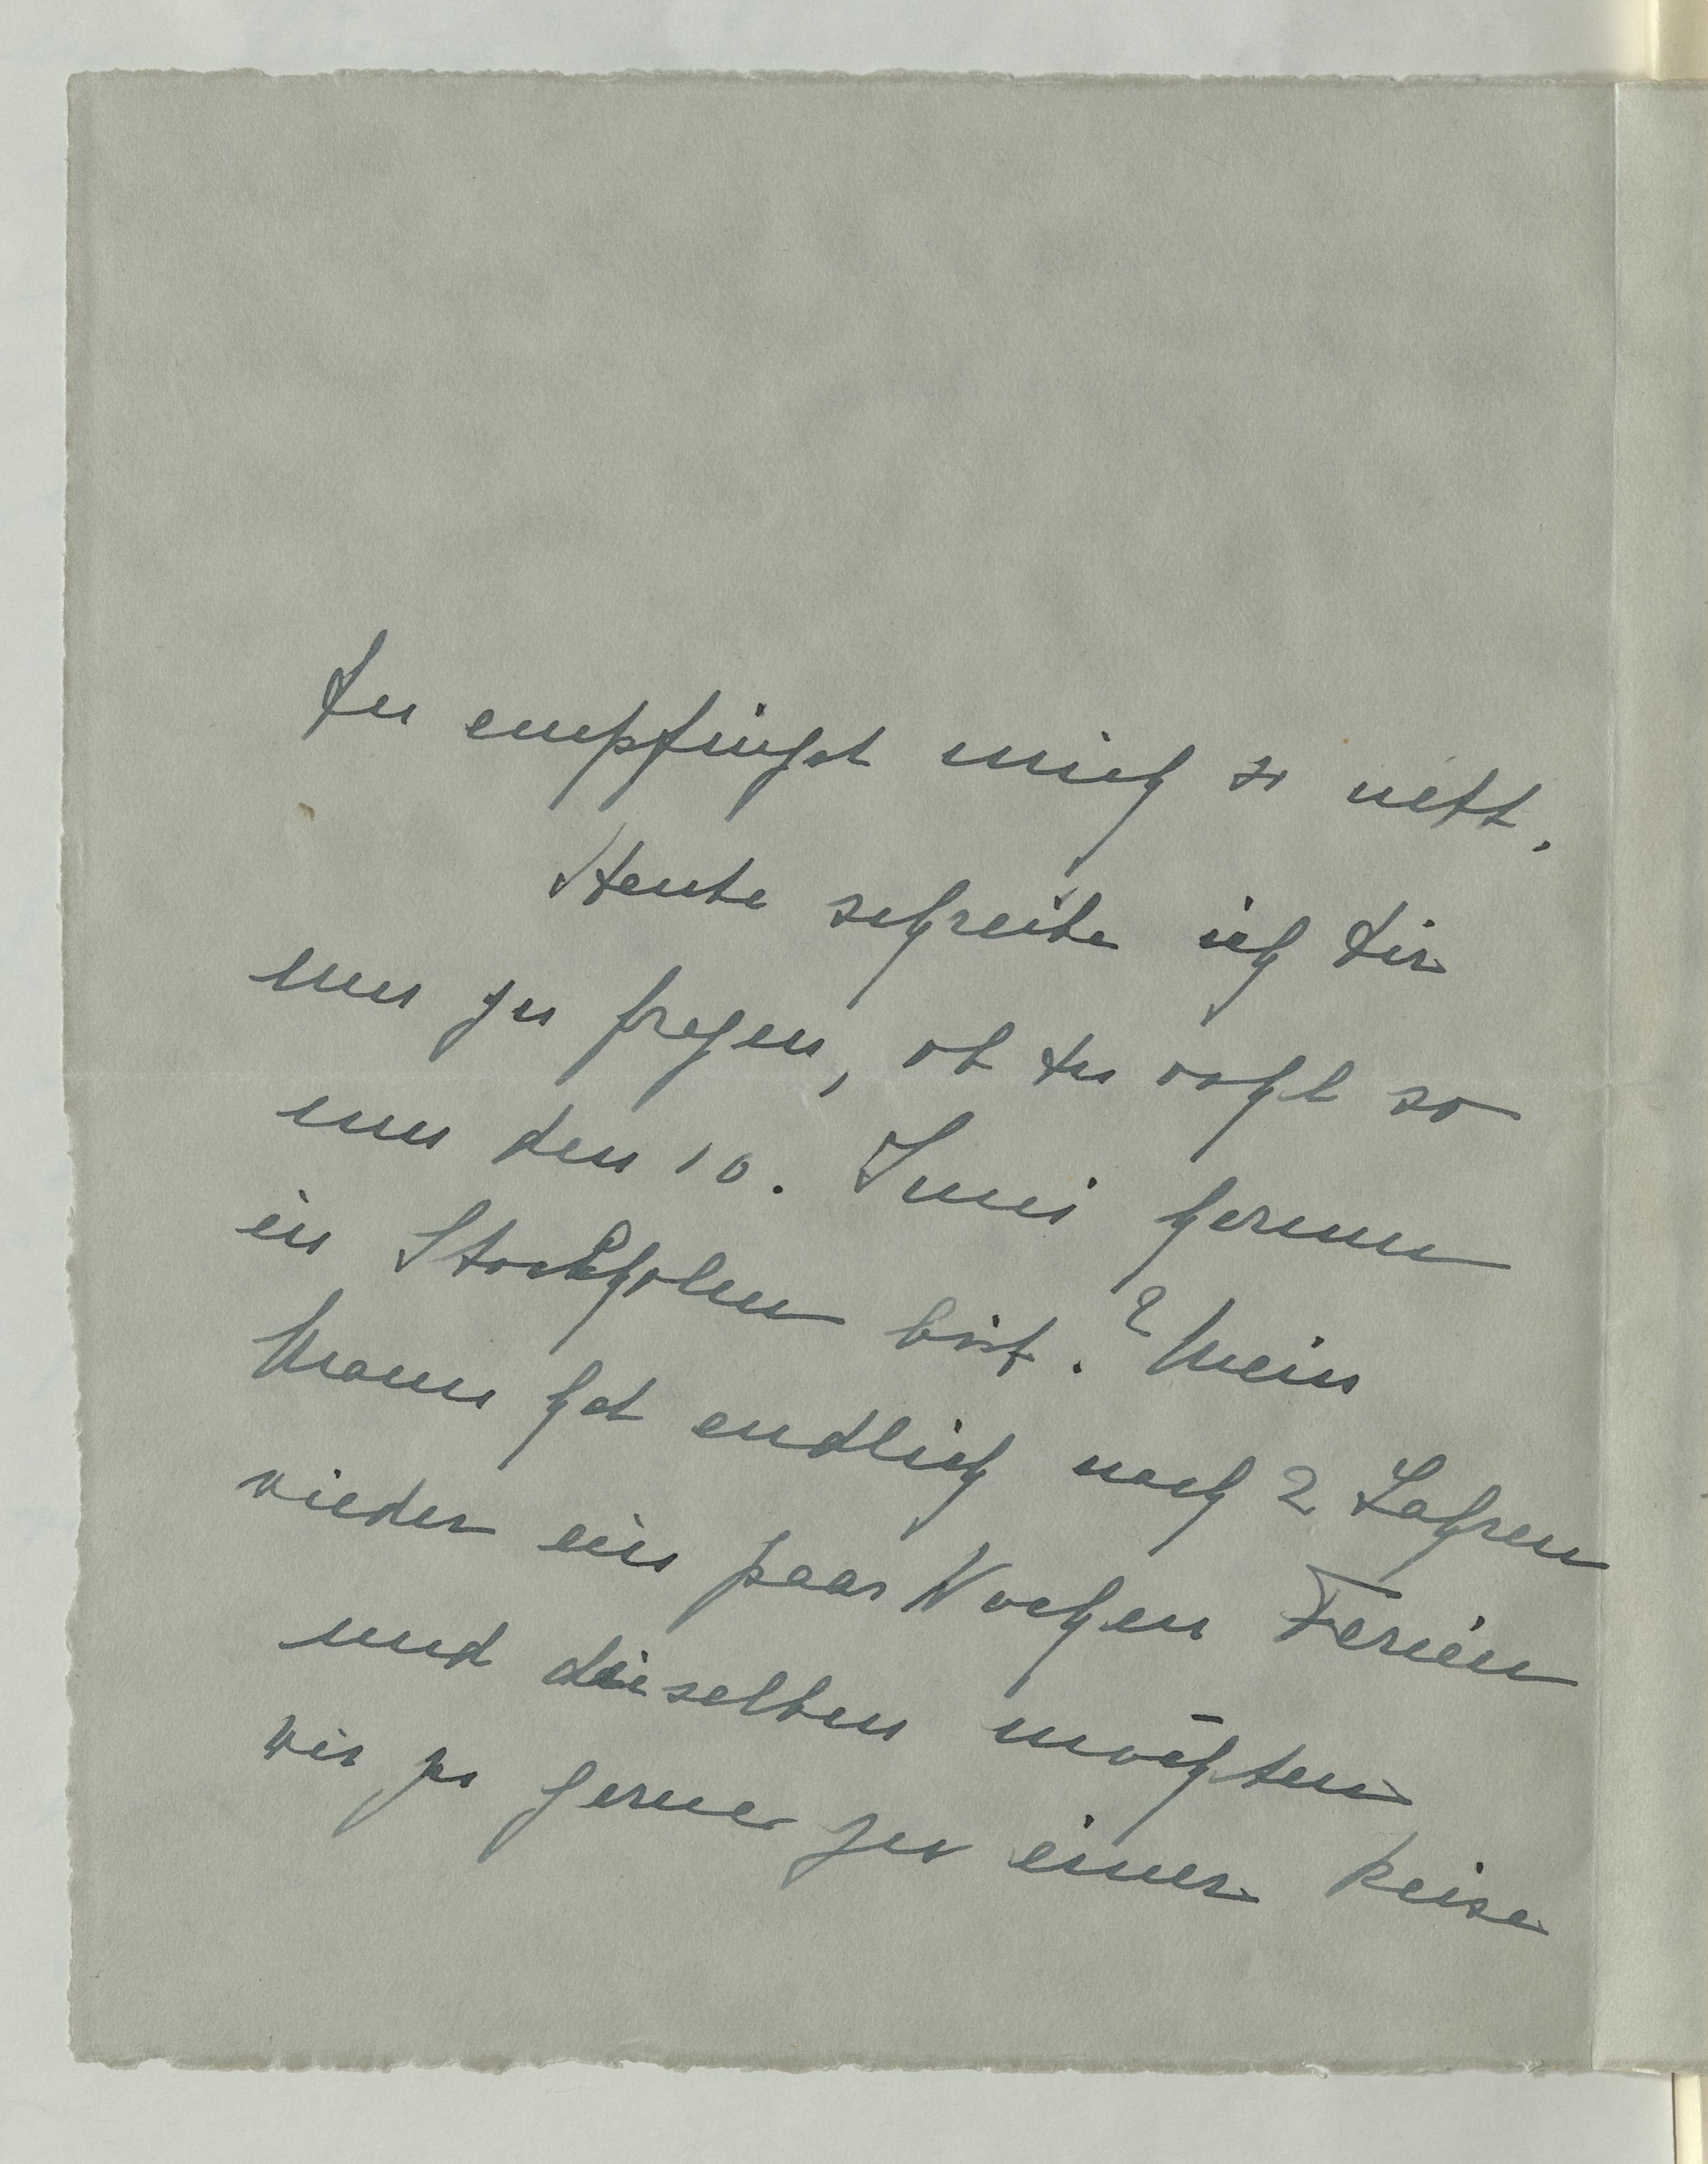 Du empfingst mich so nett.
Heute schreibe ich Dir
um zu fragen, ob Du wohl so
um den 10. Juni herum
in Stockholm bist.? Mein
Mann hat endlich nach 2 Jahren
wieder ein paar Wochen Ferien
und dieselben möchten
wir zu gerne zu einer Reise